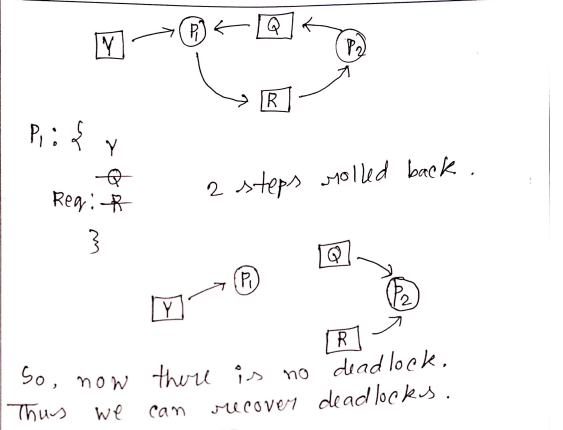 Y P1 Q P2
R
P1 : { Y
Q
Req: R
}
2 steps rolled back.
Q
Y P1 P2
R
So, now there is no deadlock.
Thus we can recover deadlocks.